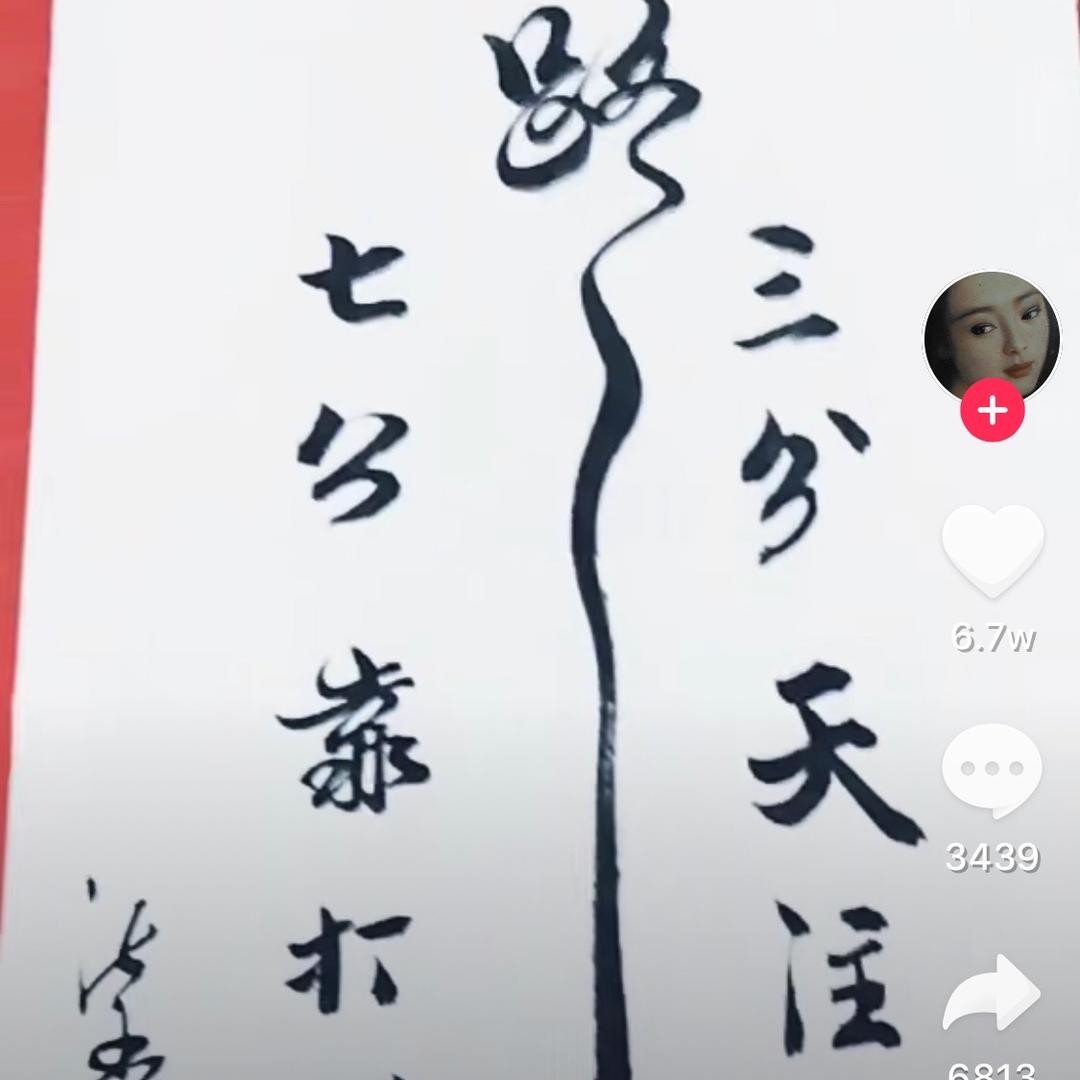 路
三分天注
七分靠打
6.7w
3439
6813